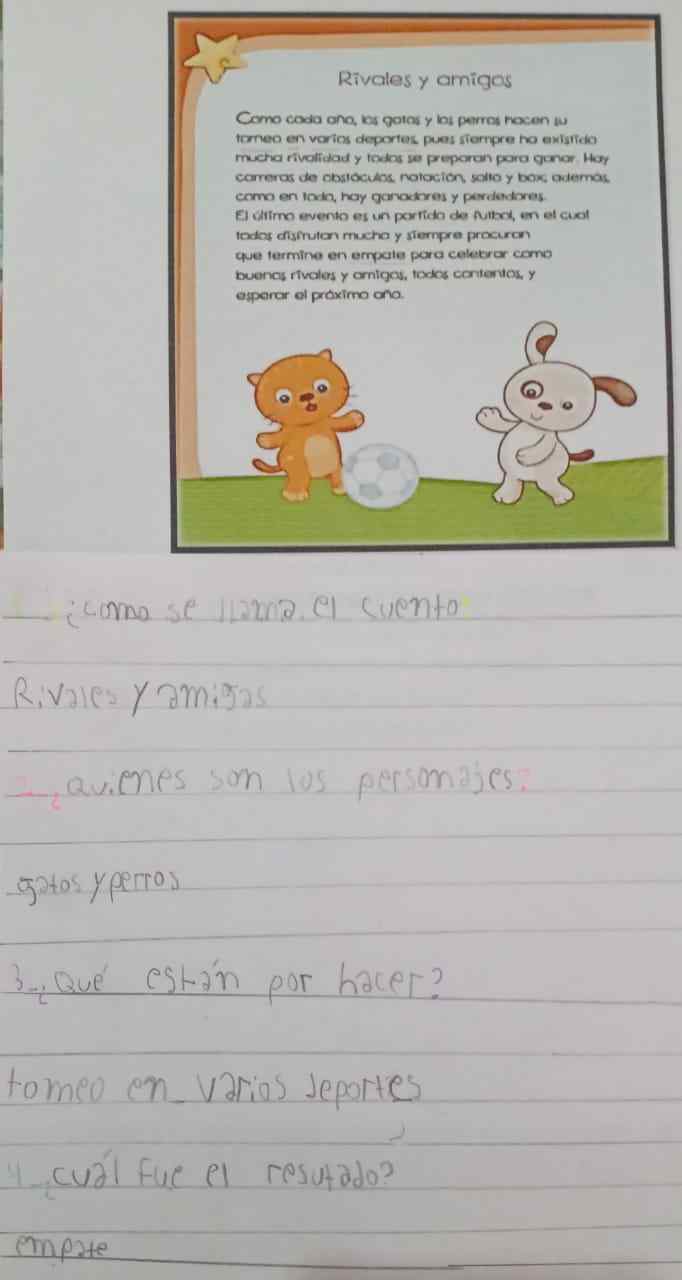 Rivales y amigos
Como cada año, los gatos y los perros hacen su
torneo en varios deportes, pues siempre ha existido
mucha rivalidad y todos se preparan para ganar. Hay
carreras de obstáculos, natación, salto y box; además,
como en todo, hay ganadores y perdedores.
El último evento es un partido de futbol, en el cual
todos disfrutan mucho y siempre procuran
que termine en empate para celebrar como
buenos rivales y amigos, todos contentos, y
esperar el próximo año.
¿como se llama el cuento?
Rivales y amigas
2_¿quienes son los personajes?
gatos y perros
3_¿Qué están por hacer?
tomeo en varios deportes
4_¿cuál fue el resutado?
empate